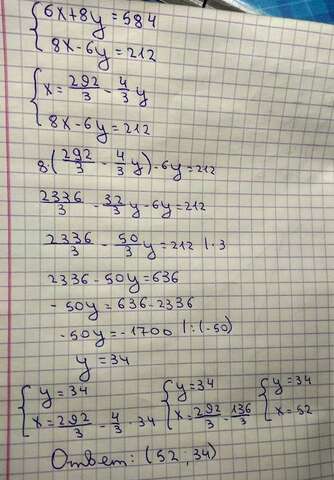 {6x+8y=584
{8x-6y=212
{x=292/3-4/3y
{8x-6y=212
8(292/3-4/3y)-6y=212
2336/3-32/3y-6y=212
2336/3-50/3y=212 |·3
2336-50y=636
-50y=636-2336
-50y=-1700 |:(-50)
y=34
{y=34 {y=34 {y=34
{x=292/3-4/3·34 {x=292/3-136/3 {x=52
Ответ: (52;34)